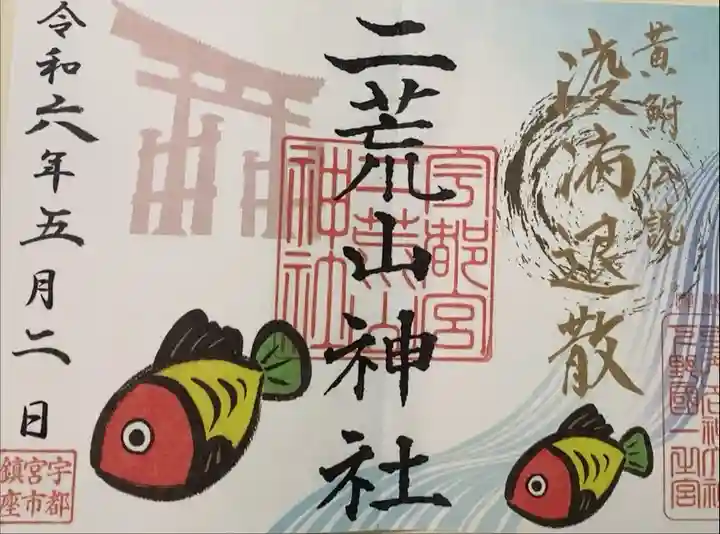 黄鮒伝説
疫病退散
下野國一之宮
二荒山神社
宇都宮
二荒山
神社
令和六年五月二日
宇都
宮市
鎮座